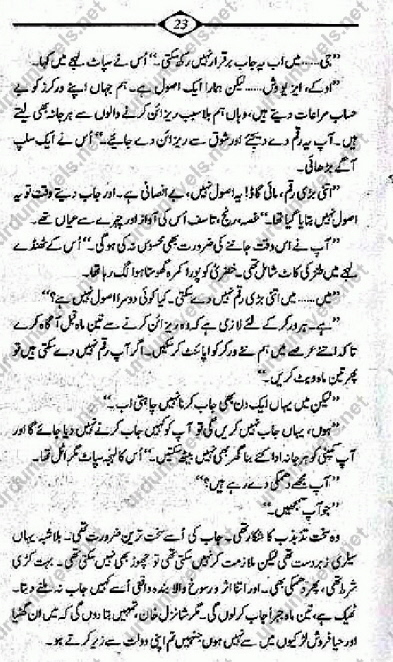 23
"جی......میں اب یہ جاب برقرار نہیں رکھ سکتی۔" اُس نے سپاٹ لہجے میں کہا۔
"اوکے، ایز یو وش......لیکن ہمارا ایک اصول ہے۔ ہم جہاں اپنے ورکرز کو بے
حساب مراعات دیتے ہیں، وہاں ہم بلاسبب ریزائن کرنے والوں سے ہرجانہ بھی لیتے
ہیں۔ آپ یہ رقم دے دیجئے اور شوق سے ریزائن دے جائیے۔" اُس نے ایک سلپ
آگے بڑھائی۔
"اتنی بڑی رقم، مائی گاڈ! یہ اصول نہیں، بے انصافی ہے۔ اور جاب دیتے وقت تو یہ
اصول نہیں بتایا گیا تھا۔" غصہ، رنج، تاسف اُس کی آواز اور چہرے سے عیاں تھے۔
"آپ نے اس وقت جاننے کی ضرورت بھی محسوس نہ کی ہوگی۔" اُس کے ٹھنڈے
لہجے میں طنز کی کاٹ شامل تھی۔ خضریٰ کو پورا کمرہ گھومتا ہوا لگ رہا تھا۔
"میں......میں اتنی بڑی رقم نہیں دے سکتی۔ کیا کوئی دوسرا اصول نہیں ہے؟"
"ہے۔ ہر ورکر کے لئے لازمی ہے کہ وہ ریزائن کرنے سے تین ماہ قبل آگاہ کرے
تاکہ اتنے عرصے میں ہم نئے ورکر کو اپائنٹ کر سکیں۔ اگر آپ رقم نہیں دے سکتی ہیں تو
پھر تین ماہ ویٹ کریں۔"
"لیکن میں یہاں ایک دن بھی جاب کرنا نہیں چاہتی اب۔"
"ہوں، یہاں جاب نہیں کریں گی تو آپ کو کہیں جاب کرنے نہیں دیا جائے گا اور
آپ کمپنی کو ہرجانہ ادا کئے بنا گھر بھی نہیں بیٹھ سکتیں۔" اُس کا لہجہ سپاٹ مگر اٹل تھا۔
"آپ مجھے دھمکی دے رہے ہیں؟"
"جو آپ سمجھیں۔"
وہ سخت تذبذب کا شکار تھی۔ جاب کی اُسے سخت ترین ضرورت تھی۔ بلاشبہ یہاں
سیلری زبردست تھی لیکن ملازمت کر نہیں سکتی تھی تو چھوڑ بھی نہیں سکتی تھی۔ بہت کڑی
شرط تھی، پھر دھمکی بھی۔ اور اتنا اثر و رسوخ والا بندہ واقعی اُسے کہیں جاب نہ ملنے دیتا۔
ٹھیک ہے، تین ماہ جبراً جاب کرلوں گی۔ مگر شانزل خان، تمہیں بتا دوں گی کہ میں اُن گھٹیا
اور حیا فروش لڑکیوں میں سے نہیں ہوں جنہیں تم اپنی دولت سے زیر کرتے ہو۔
urdunovels.net